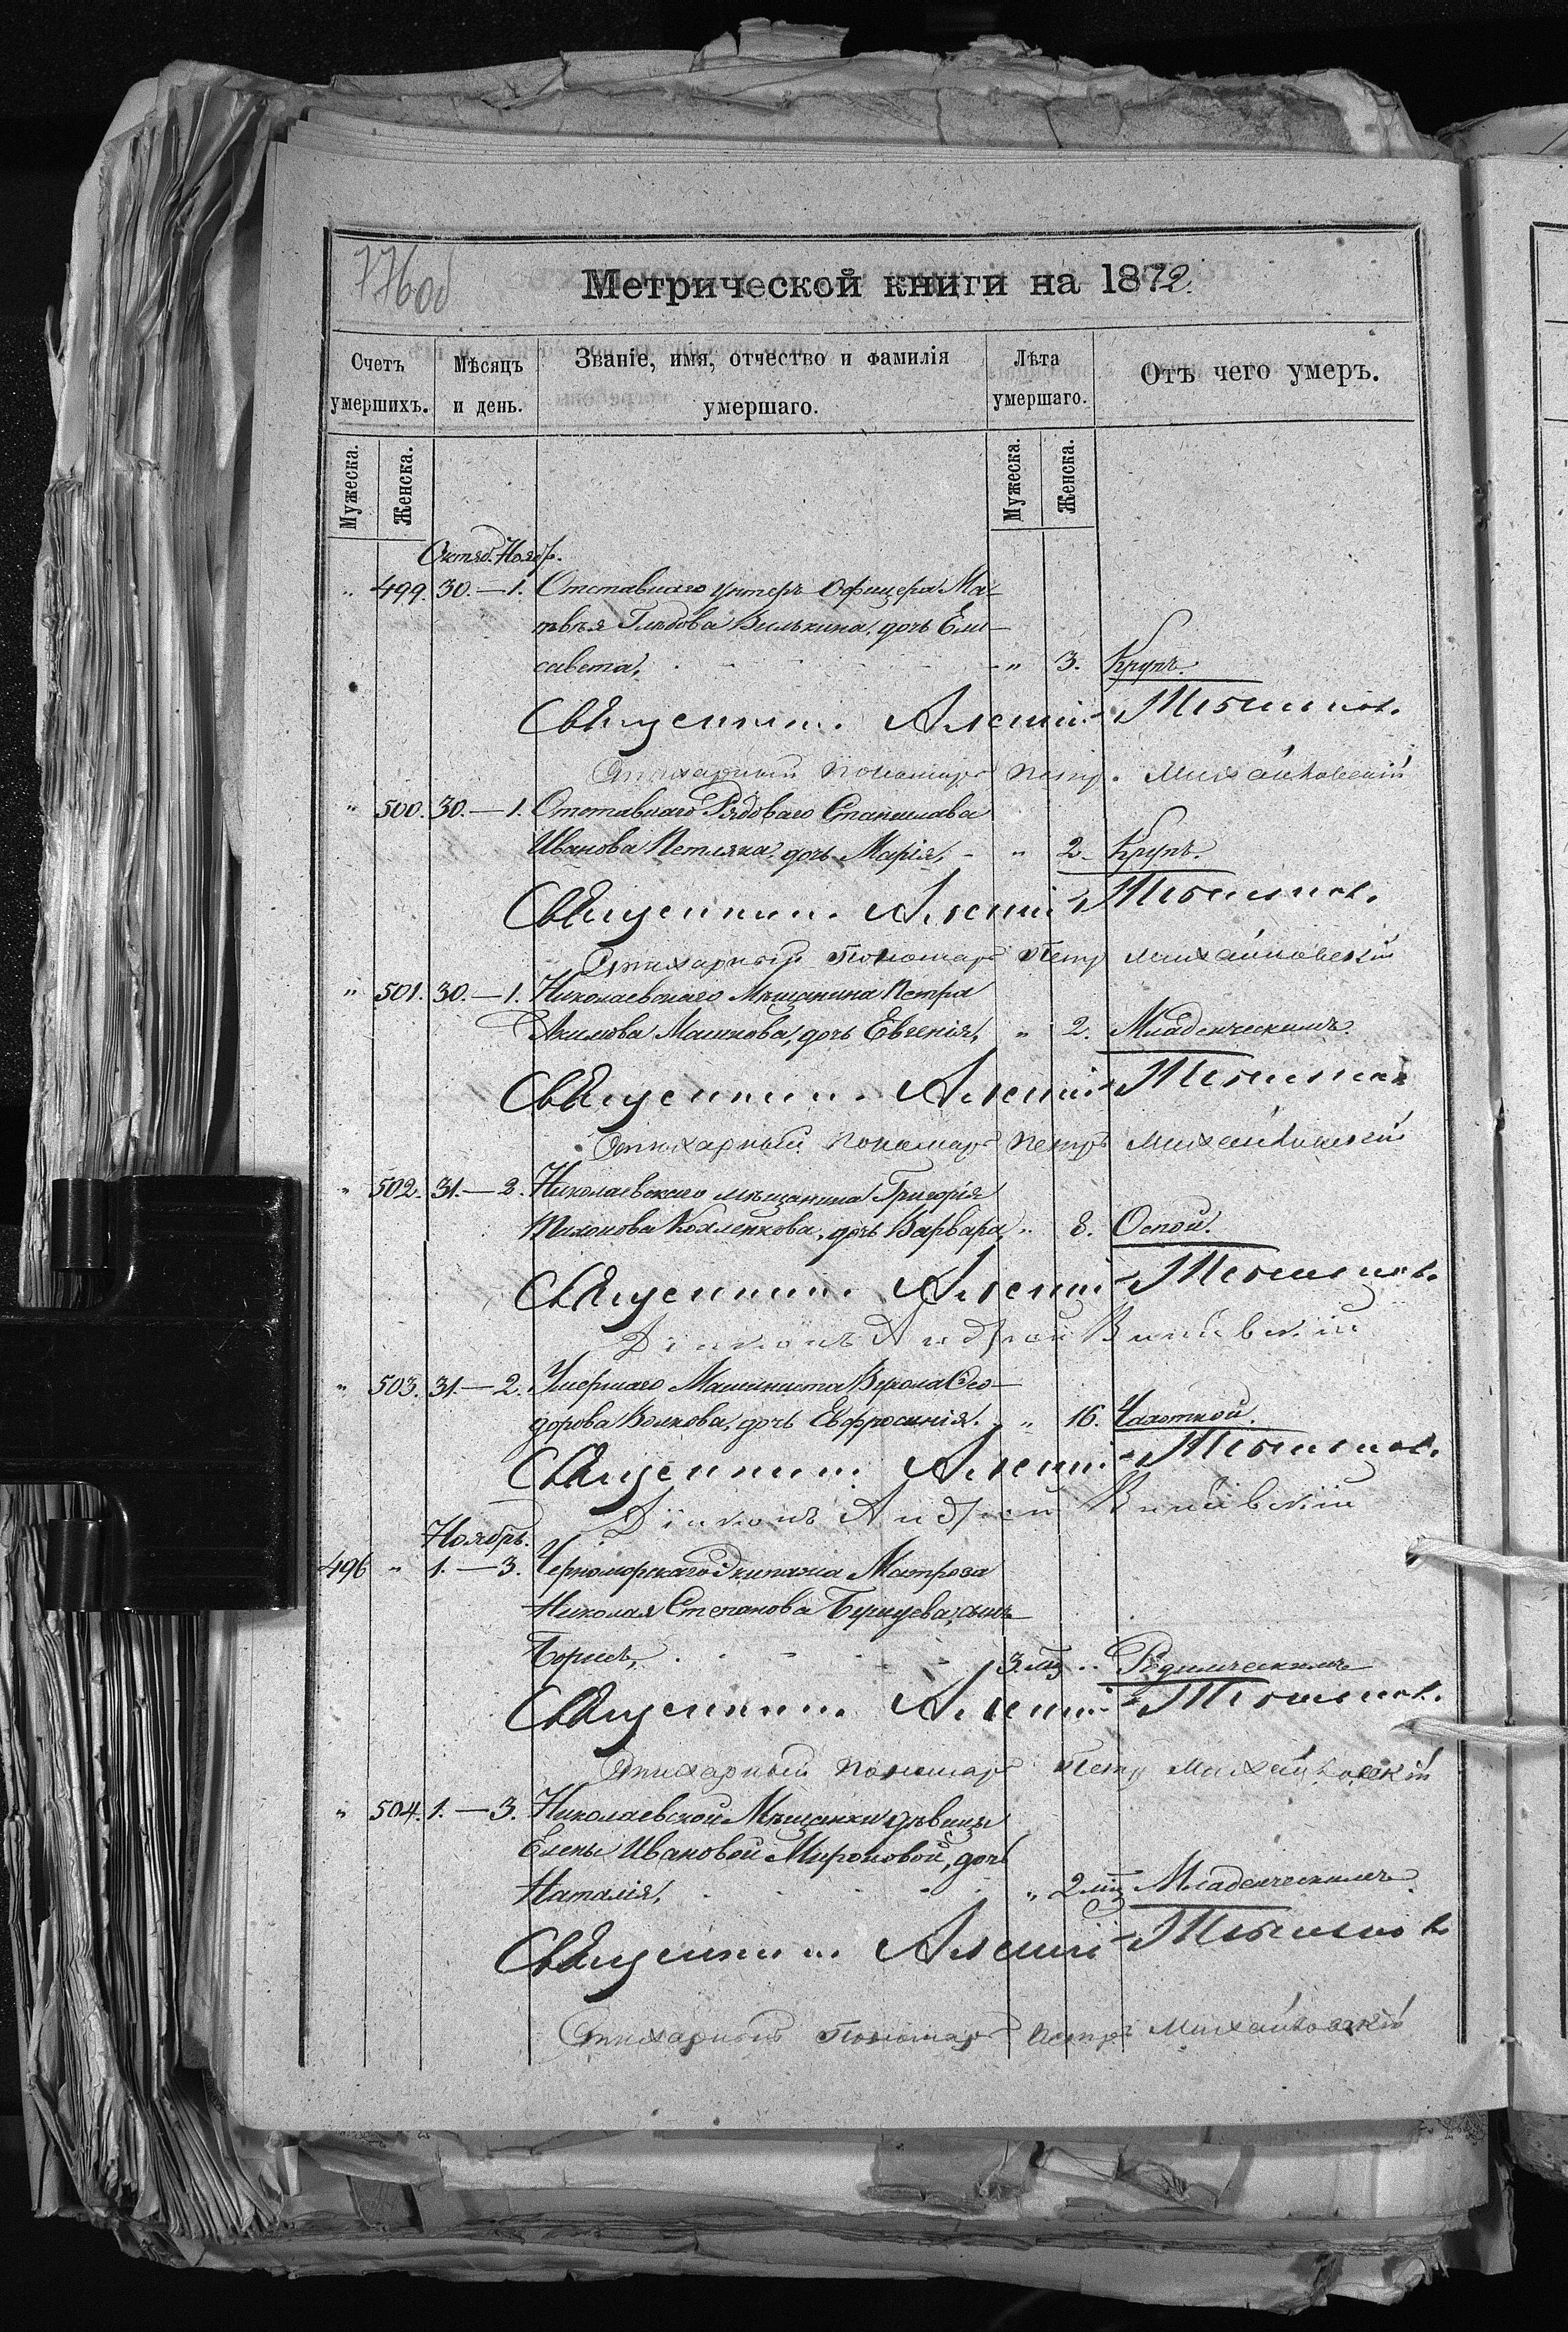 776об
Метрической книги на 1872.
Счетъ умершихъ.
Мѣсяцъ и день.
Званіе, имя, отчество и фамилія умершаго.
Лѣта умершаго.
Отъ чего умеръ.
Мужеска.
Женска.
Мужеска.
Женска.
Октяб. Нояб.
" 499. 30.—1. Отставнаго унтеръ офицера Ма-
твѣя Глѣбова Вилькина, дочь Ели-
савета, " 3. Крупъ.
Священникъ Алексій
Стихарный пономарь Петръ Михайловскій
" 500. 30.—1. Отставнаго Рядоваго Станислава
Иванова Петляка, дочь Марія, " 2. Крупъ.
Священникъ Алексій
Стихарный Пономарь Петръ Михайловскій
" 501. 30.—1. Николаевскаго Мѣщанина Петра
Акимова Машкова, дочь Евгенія, " 2. Младенческимъ.
Священникъ Алексій
Стихарный Пономарь Петръ Михайловскій
" 502. 31.—2. Николаевскаго мѣщанина Григорія
Тихонова дочь Варвара, " 8. Оспой.
Священникъ Алексій
Діаконъ Андрей
" 503. 31.—2. Умершаго Машиниста Ѳео-
дорова Волкова, дочь Евфросинія. " 16. Чахоткой.
Священникъ Алексій
Діаконъ Андрей
Ноябрь.
496 " 1.—3. Черноморскаго Экипажа Матроса
Николая Степанова сынъ
Борисъ, 3. мц " Родимческимъ
Священникъ Алексій
Стихарный Пономарь Петръ Михайловскій
" 504. 1.—3. Николаевской Мѣщанки дѣвицы
Елены Ивановой Мироновой, дочь
Наталія, " 2 мц Младенческимъ
Священникъ Алексій
Стихарный Пономарь Петръ Михайловскій